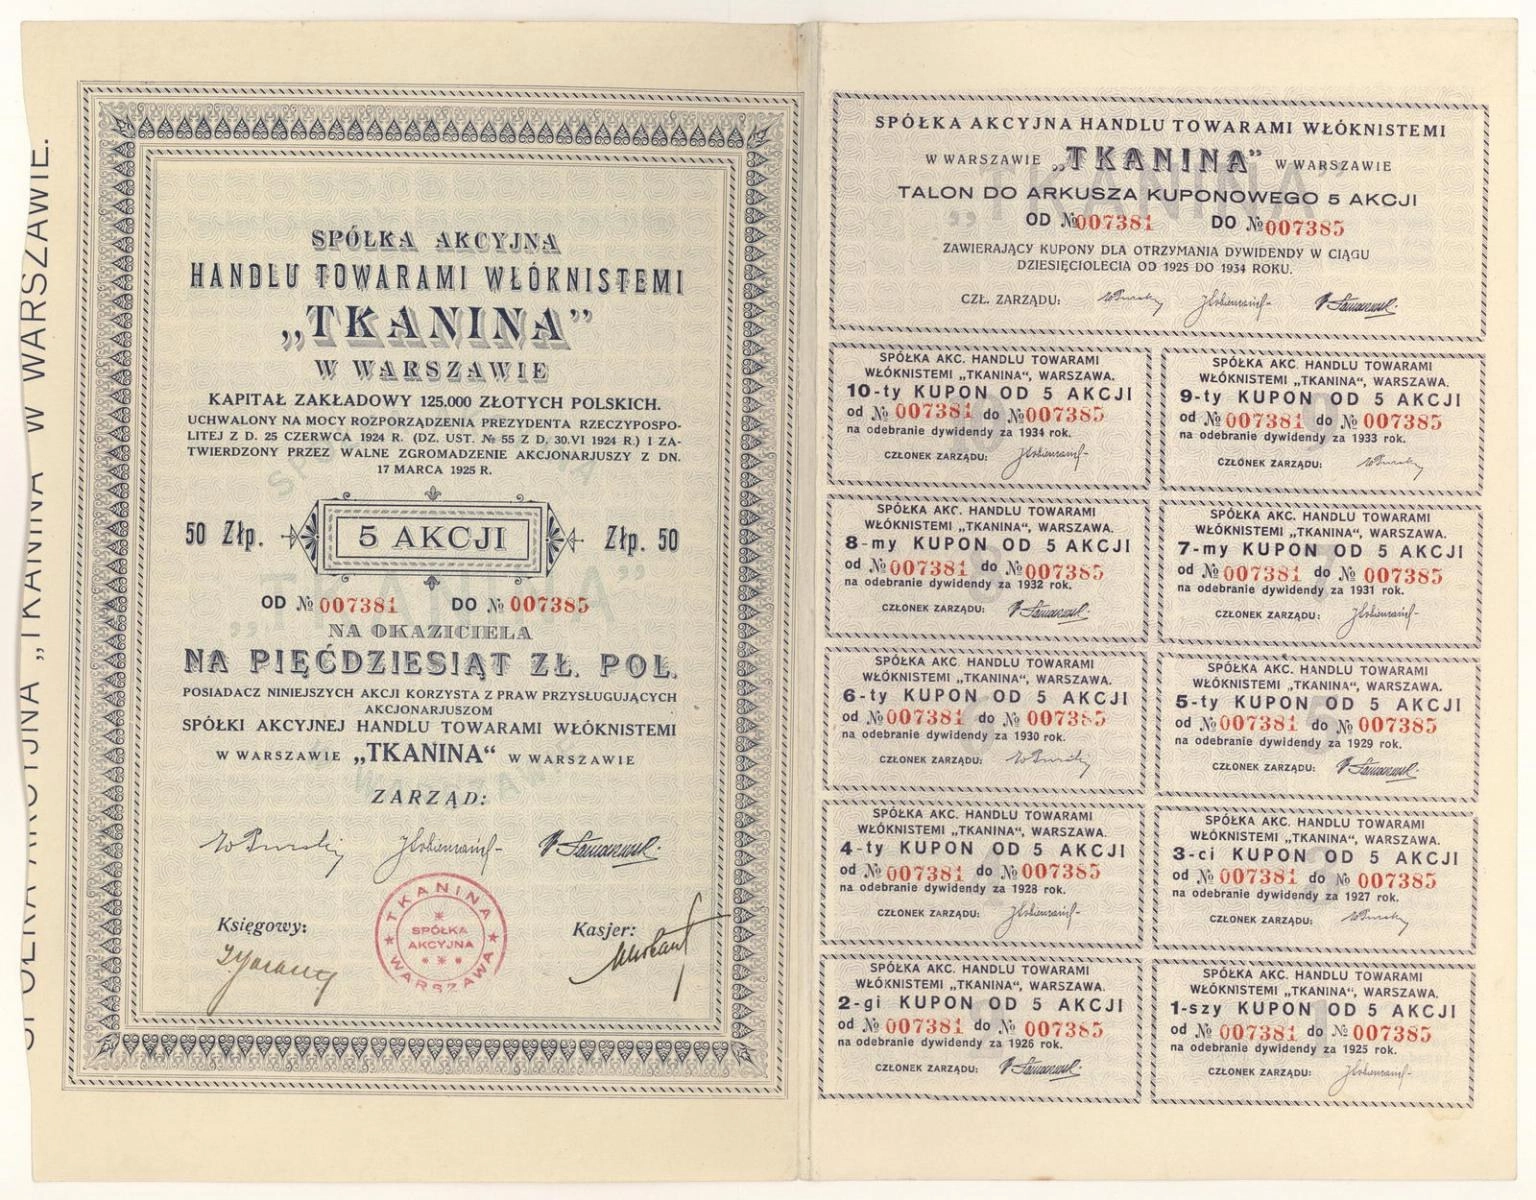 SPÓŁKA AKCYJNA „TKANINA" W WARSZAWIE.
SPÓŁKA AKCYJNA
HANDLU TOWARAMI WŁÓKNISTEMI
„TKANINA”
W WARSZAWIE
KAPITAŁ ZAKŁADOWY 125.000 ZŁOTYCH POLSKICH.
UCHWALONY NA MOCY ROZPORZĄDZENIA PREZYDENTA RZECZYPOSPO-
LITEJ Z D. 25 CZERWCA 1924 R. (DZ. UST. № 55 Z D. 30.VI 1924 R.) I ZA-
TWIERDZONY PRZEZ WALNE ZGROMADZENIE AKCJONARJUSZY Z DN.
17 MARCA 1925 R.
50 Złp. 5 AKCJI Złp. 50
OD № 007381 DO № 007385
NA OKAZICIELA
NA PIĘĆDZIESIĄT ZŁ. POL.
POSIADACZ NINIEJSZYCH AKCJI KORZYSTA Z PRAW PRZYSŁUGUJĄCYCH
AKCJONARJUSZOM
SPÓŁKI AKCYJNEJ HANDLU TOWARAMI WŁÓKNISTEMI
W WARSZAWIE „TKANINA“ W WARSZAWIE
ZARZĄD:
Księgowy:
Kasjer:
TKANINA
SPÓŁKA
AKCYJNA
WARSZAWA
SPÓŁKA AKCYJNA HANDLU TOWARAMI WŁÓKNISTEMI
W WARSZAWIE „TKANINA” W WARSZAWIE
TALON DO ARKUSZA KUPONOWEGO 5 AKCJI
OD № 007381 DO № 007385
ZAWIERAJĄCY KUPONY DLA OTRZYMANIA DYWIDENDY W CIĄGU
DZIESIĘCIOLECIA OD 1925 DO 1934 ROKU.
CZŁ. ZARZĄDU:
SPÓŁKA AKC. HANDLU TOWARAMI
WŁÓKNISTEMI „TKANINA“, WARSZAWA.
10-ty KUPON OD 5 AKCJI
od № 007381 do № 007385
na odebranie dywidendy za 1934 rok.
CZŁONEK ZARZĄDU:
SPÓŁKA AKC. HANDLU TOWARAMI
WŁÓKNISTEMI „TKANINA“, WARSZAWA.
9-ty KUPON OD 5 AKCJI
od № 007381 do № 007385
na odebranie dywidendy za 1933 rok.
CZŁONEK ZARZĄDU:
SPÓŁKA AKC. HANDLU TOWARAMI
WŁÓKNISTEMI „TKANINA“, WARSZAWA.
8-my KUPON OD 5 AKCJI
od № 007381 do № 007385
na odebranie dywidendy za 1932 rok.
CZŁONEK ZARZĄDU:
SPÓŁKA AKC. HANDLU TOWARAMI
WŁÓKNISTEMI „TKANINA“, WARSZAWA.
7-my KUPON OD 5 AKCJI
od № 007381 do № 007385
na odebranie dywidendy za 1931 rok.
CZŁONEK ZARZĄDU:
SPÓŁKA AKC. HANDLU TOWARAMI
WŁÓKNISTEMI „TKANINA“, WARSZAWA.
6-ty KUPON OD 5 AKCJI
od № 007381 do № 007385
na odebranie dywidendy za 1930 rok.
CZŁONEK ZARZĄDU:
SPÓŁKA AKC. HANDLU TOWARAMI
WŁÓKNISTEMI „TKANINA“, WARSZAWA.
5-ty KUPON OD 5 AKCJI
od № 007381 do № 007385
na odebranie dywidendy za 1929 rok.
CZŁONEK ZARZĄDU:
SPÓŁKA AKC. HANDLU TOWARAMI
WŁÓKNISTEMI „TKANINA“, WARSZAWA.
4-ty KUPON OD 5 AKCJI
od № 007381 do № 007385
na odebranie dywidendy za 1928 rok.
CZŁONEK ZARZĄDU:
SPÓŁKA AKC. HANDLU TOWARAMI
WŁÓKNISTEMI „TKANINA“, WARSZAWA.
3-ci KUPON OD 5 AKCJI
od № 007381 do № 007385
na odebranie dywidendy za 1927 rok.
CZŁONEK ZARZĄDU:
SPÓŁKA AKC. HANDLU TOWARAMI
WŁÓKNISTEMI „TKANINA“, WARSZAWA.
2-gi KUPON OD 5 AKCJI
od № 007381 do № 007385
na odebranie dywidendy za 1926 rok.
CZŁONEK ZARZĄDU:
SPÓŁKA AKC. HANDLU TOWARAMI
WŁÓKNISTEMI „TKANINA“, WARSZAWA.
1-szy KUPON OD 5 AKCJI
od № 007381 do № 007385
na odebranie dywidendy za 1925 rok.
CZŁONEK ZARZĄDU: